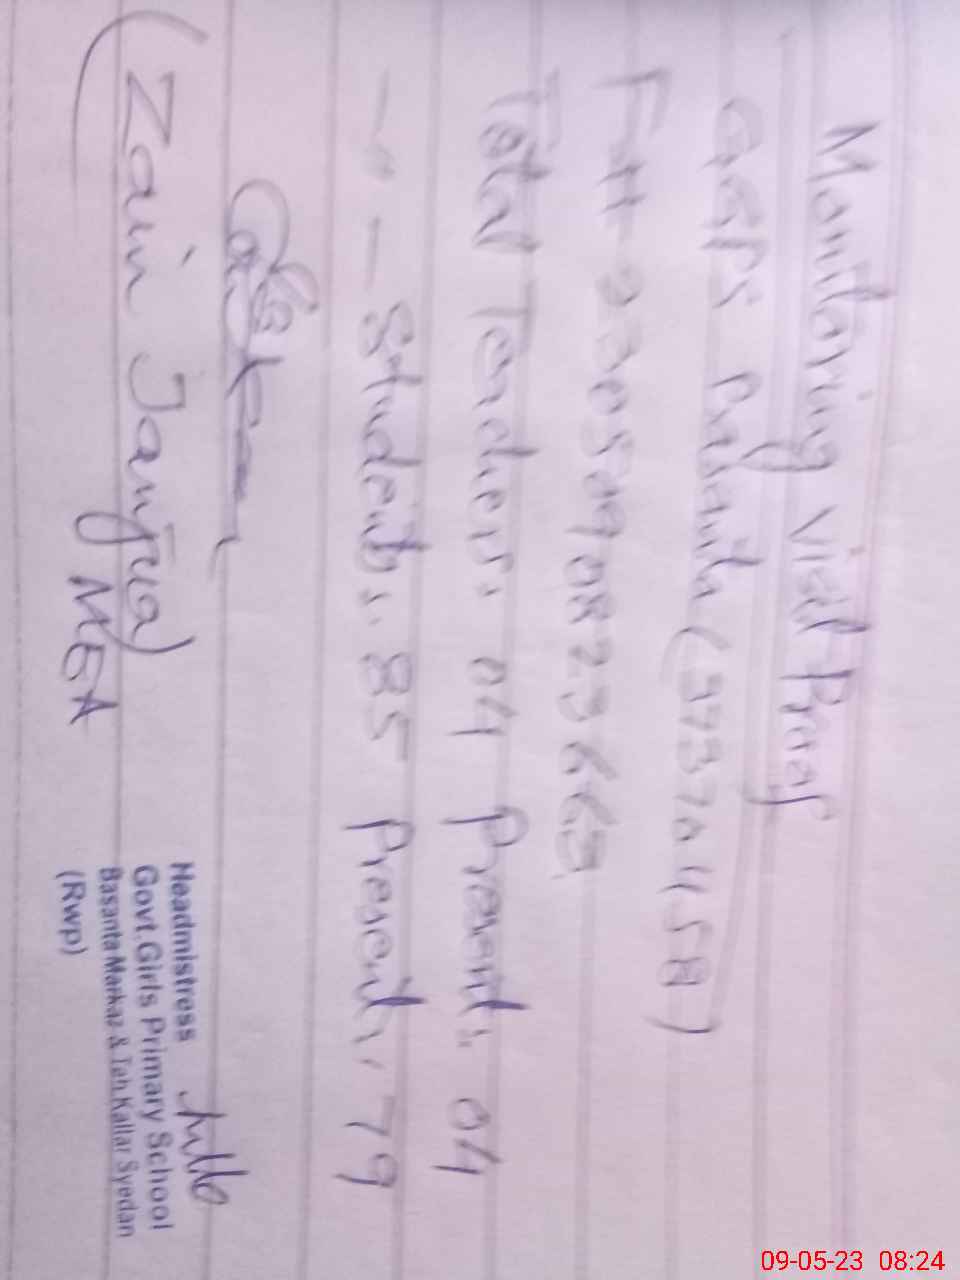 Monitoring Visit Proof
GGPS Basanta (37370458)
Total Teachers. 04 Present. 04
— " — Students. 85 Present. 79
(Zain Janjua)
MEA
Headmistress
Govt.Girls Primary School
Basanta Markaz & Teh Kallar Syedan
(Rwp)
09-05-23 08:24